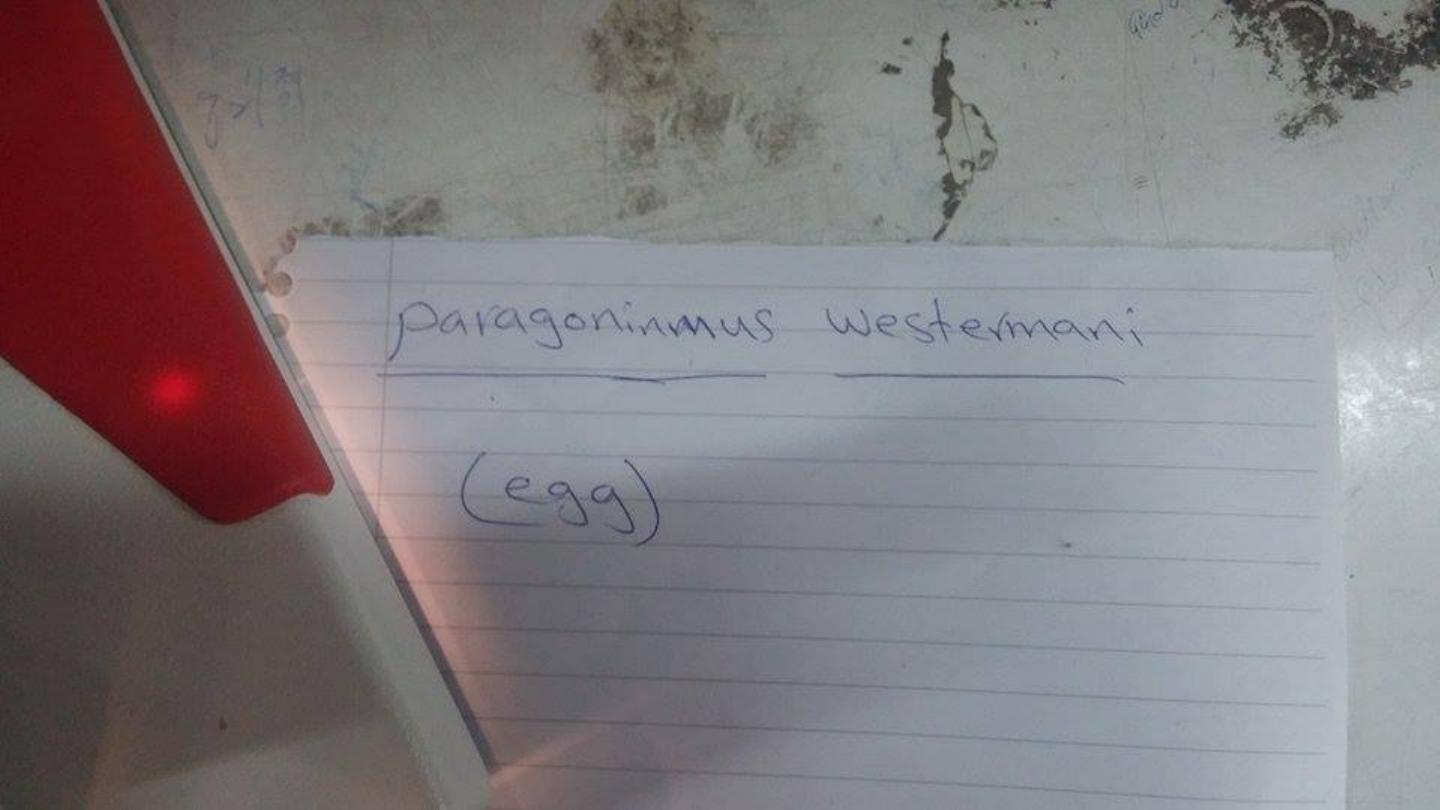 paragoninmus westermani
(egg)